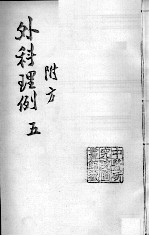 外科理例 五
附方